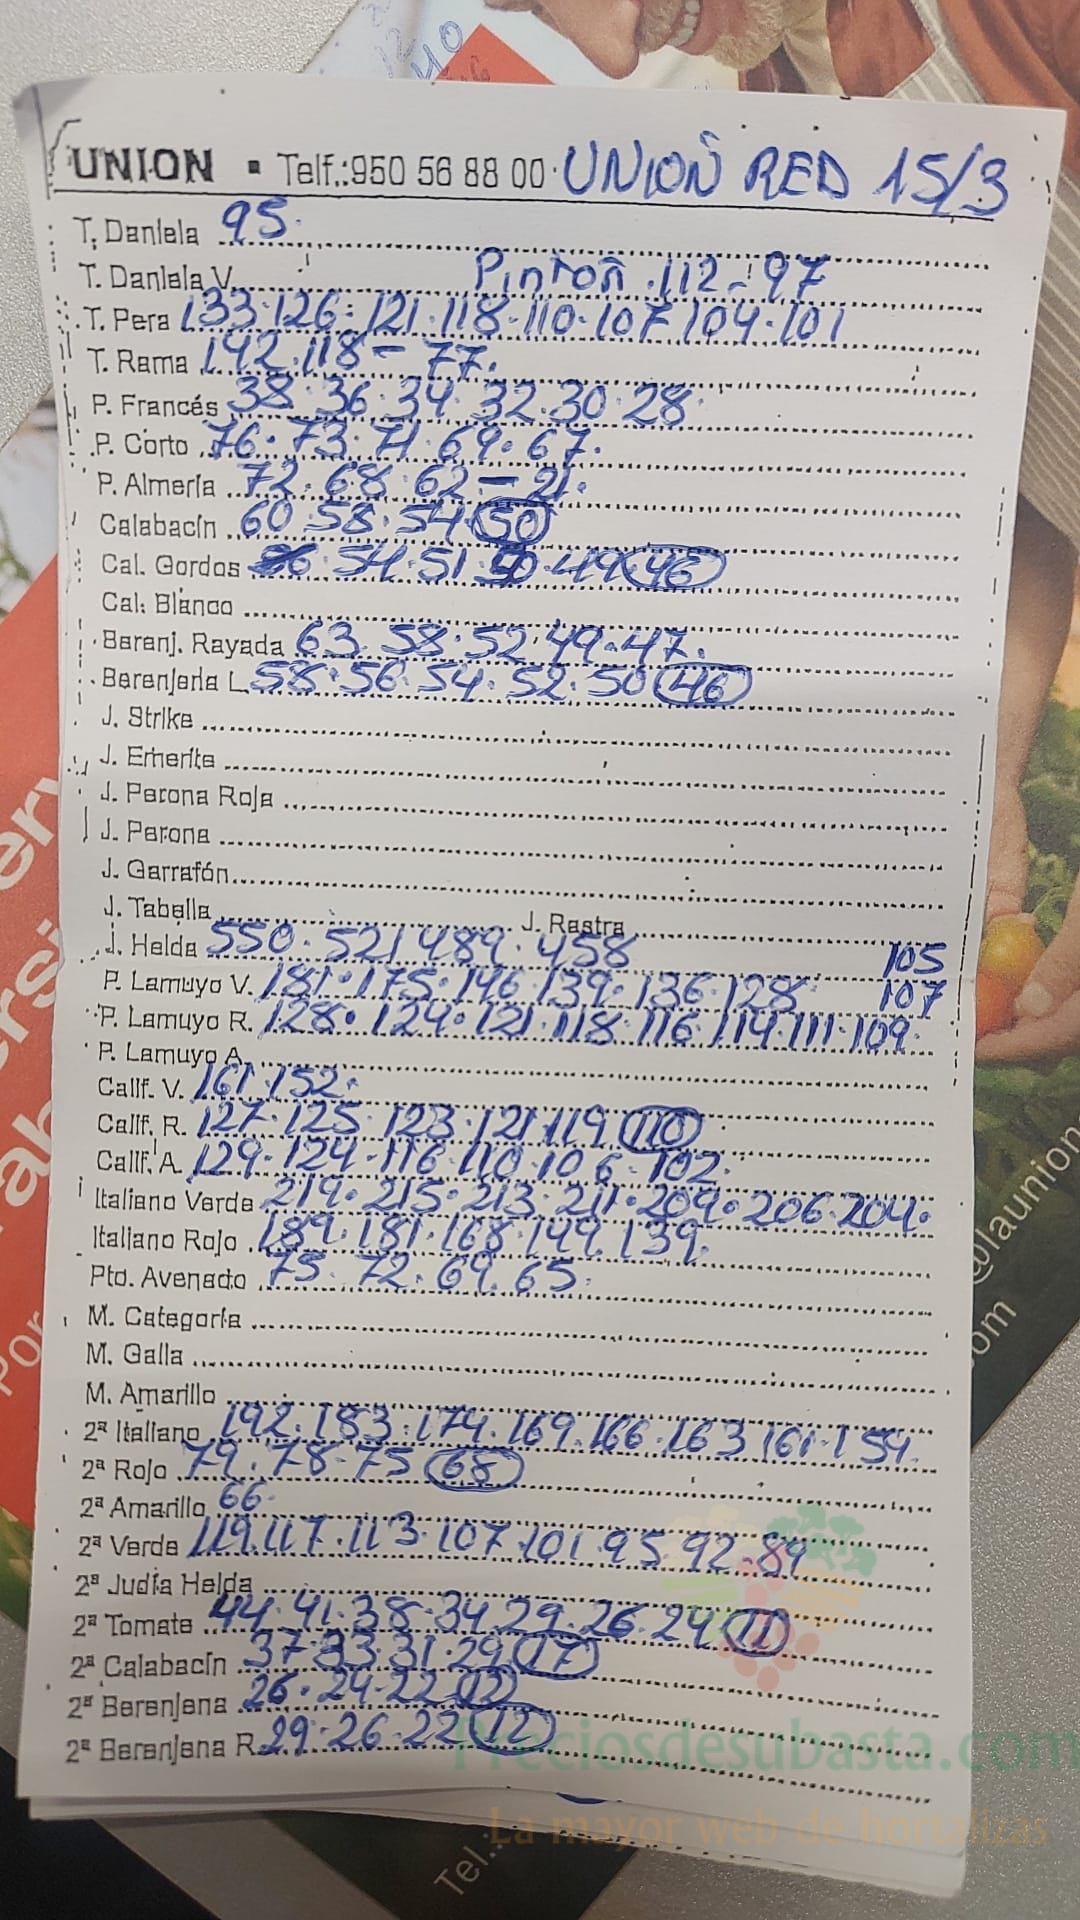 UNION ▪ Telf.:950 56 88 00 · UNION RED 15/3
T. Daniela 95.
T. Daniela V. Pintoñ 112-97
T. Pera 133.126.121.118.110.107 104.101
T. Rama 142.118-77.
P. Francés 38.36.34.32.30.28
P. Corto 76.73.71.69.67.
P. Almería 72.68.62-21.
Calabacín 60 58.54 50
Cal. Gordos 56.54.51.50.49 46
Cal. Blanco
Berenj. Rayada 63.58.52.49.47.
Berenjena L. 58.56.54.52.50 46
J. Strike
J. Emerite
J. Perona Roja
J. Perona
J. Garrafón
J. Tabella J. Rastra
J. Helda 550.521 489.458 105
P. Lamuyo V. 181.175.146.139.136.128 107
P. Lamuyo R. 128.124.121.118.116.114.111.109.
P. Lamuyo A.
Calif. V. 161.152.
Calif. R. 127.125.123.121.119 110
Calif. A. 129.124.116.110.106.102.
Italiano Verde 219.215.213.211.209.206.204.
Italiano Rojo 189.181.168.149.139.
Pto. Avenado 75.72.69.65.
M. Categoría
M. Galla
M. Amarillo
2ª Italiano 192.183.174.169.166.163 161.154.
2ª Rojo 79.78.75 68
2ª Amarillo 66.
2ª Verde 119.117.113.107.101.95.92.89
2ª Judía Helda
2ª Tomate 44.41.38.34.29.26.24 11
2ª Calabacín 37.33.31.29 17
2ª Berenjena 26.24.22 12
2ª Berenjena R. 29.26.22 12
Preciosdesubasta.com
La mayor web de hortalizas
Tel.:
@launion
com
Por